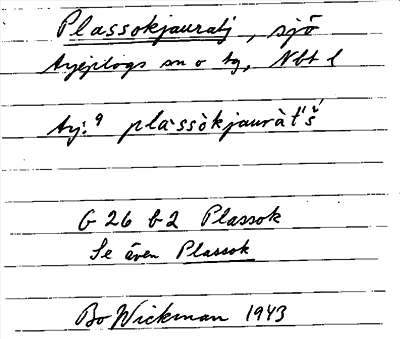 Plassokjauratj, sjö
Arjeplogs sn o tg, Nbt l
Arj:⁹ plàssòkjauràt́'š́
G 26 b2 Plassok
Se även Plassok
Bo Wickman 1943